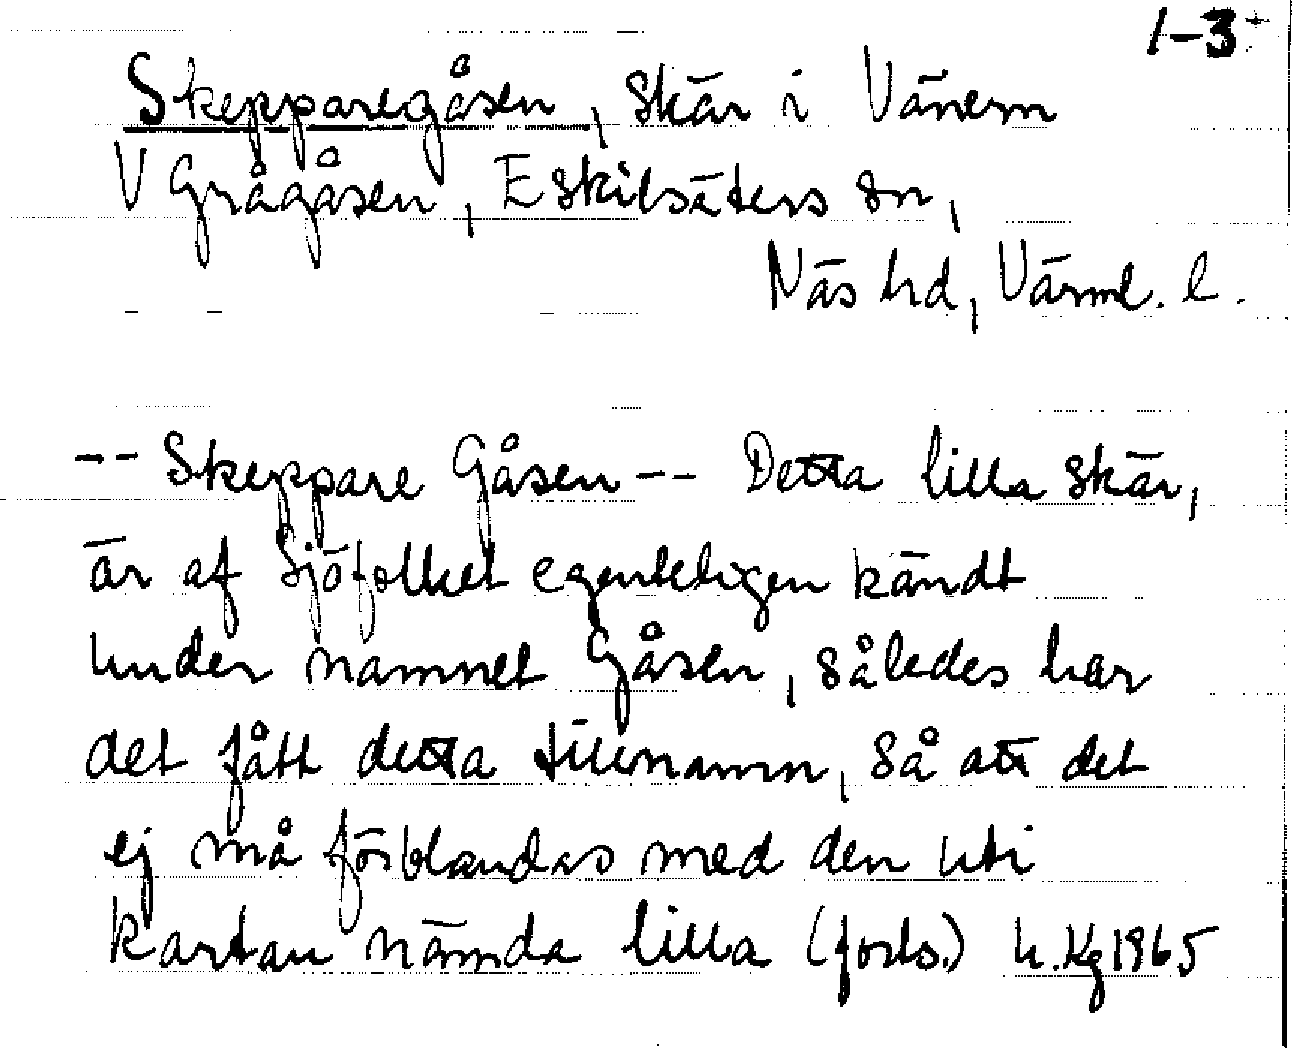 1-3
Skepparegåsen, skär i Vänern
V Grågåsen, Eskilsäters sn,
Näs hd, Värml. l.
-- Skeppare Gåsen -- Detta lilla skär,
är af Sjöfolket egenteligen kändt
under namnet Gåsen, således har
det fått detta tillnamn, så att det
ej må förblandas med den uti
kartan nämda lilla (forts.) h.Kg 1965